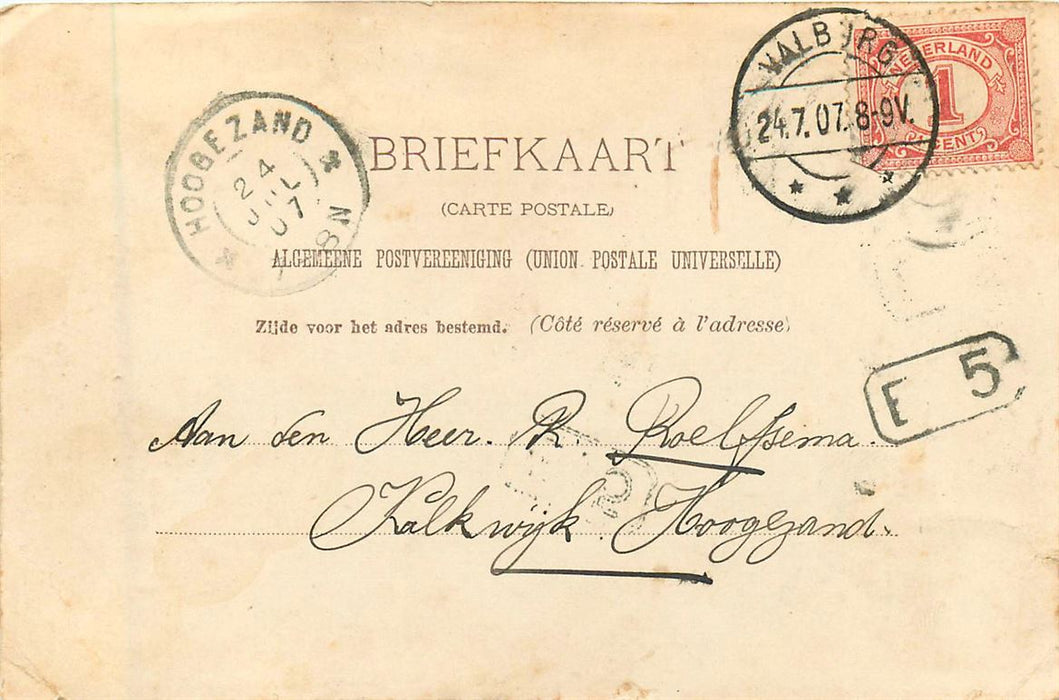 VALBURG
24.7.07.8-9V.
NEDERLAND
1
CENT
HOOGEZAND
24
JUL
07
8N
BRIEFKAART
(CARTE POSTALE)
ALGEMEENE POSTVEREENIGING (UNION POSTALE UNIVERSELLE)
Zijde voor het adres bestemd. (Côté réservé à l'adresse)
E 5
Aan den Heer. R. Roelfsema.
Kalkwijk. Hoogezand.